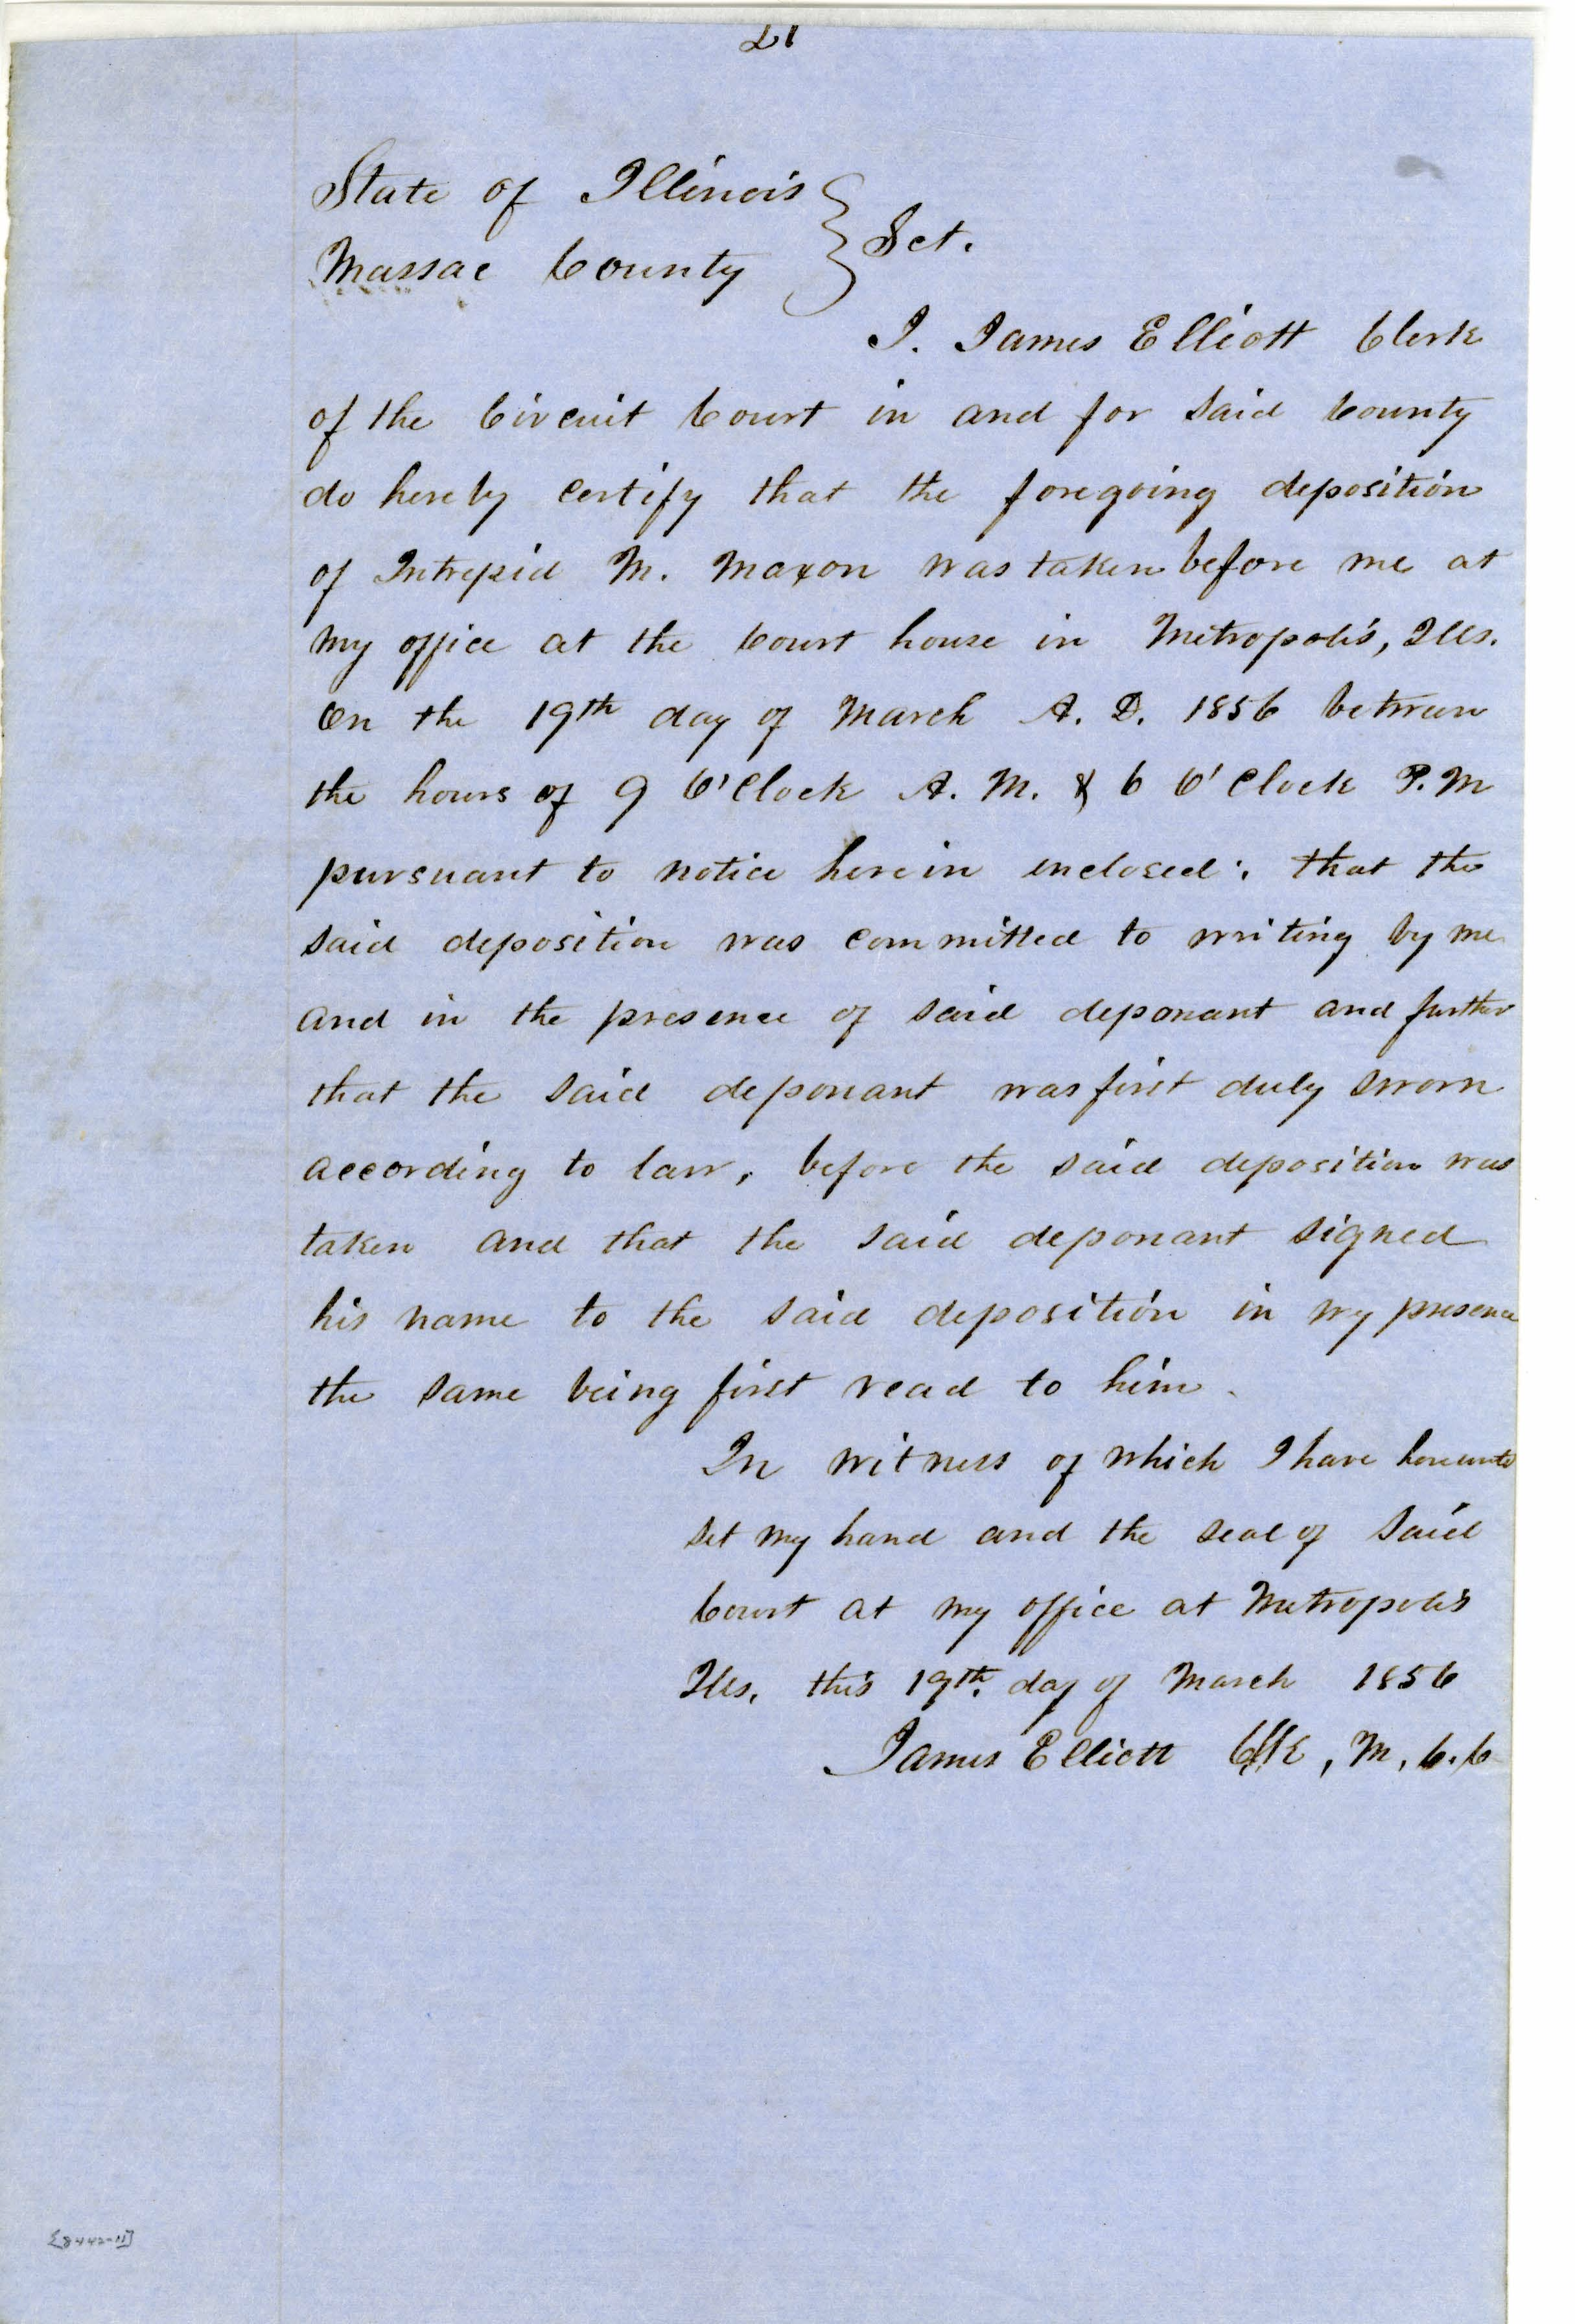 21
State of Illinois
Massac County } Sct.
I. James Elliott Clerk
of the Circuit Court in and for said County
do hereby certify that the foregoing deposition
of Intrepid M. Maxon was taken before me at
my office at the Court house in Metropolis, Ills.
On the 19th day of March A. D. 1856 between
the hours of 9 O'Clock A. M. & 6 O'Clock P. M
pursuant to notice herein enclosed; that the
said deposition was committed to writing by me
and in the presence of said deponant and further
that the said deponant was first duly sworn
according to law, before the said deposition was
taken and that the said deponant signed
his name to the said deposition in my presence
the same being first read to him.
In witness of which I have hereunto
set my hand and the seal of said
Court at my office at Metropolis
Ills. this 19th. day of March 1856
James Elliott Clk, M. C. C
[8442-11]